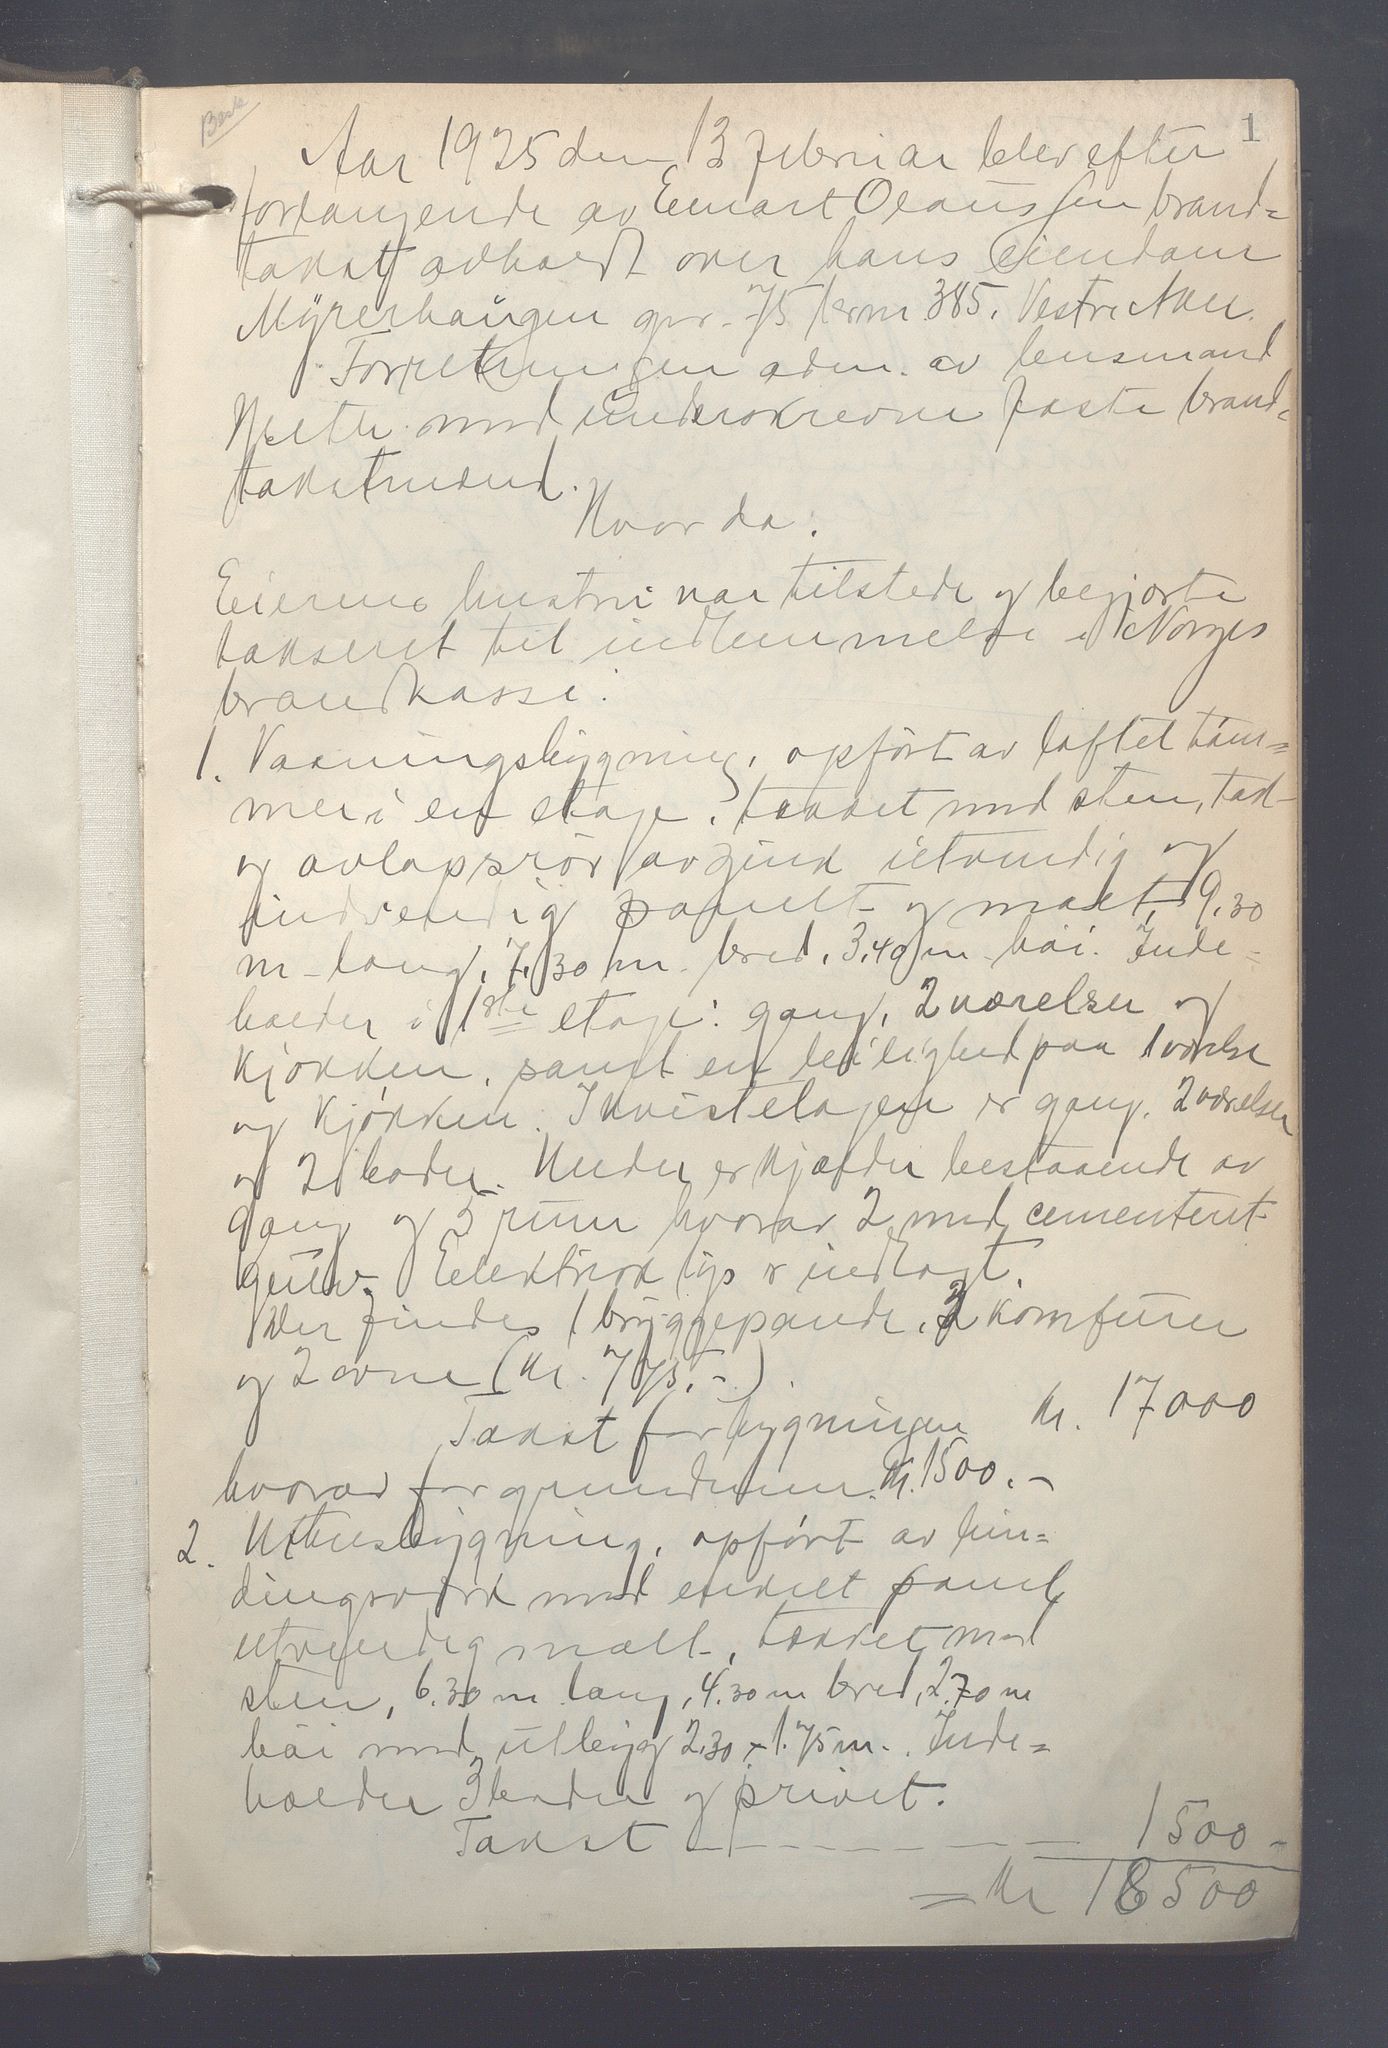 Besk
1
Aar 1925 den 13 februar blev efter
forlangende av Einart Olaussen brand=
takst avholdt over hans eiendom
Myrerhaugen gnr. 75 brnr 385. Vestre Aker.
Forretningen adm. av lensmand
med underskrevne faste brand=
takstmænd.
Hvorda:
Eierens hustru var tilstede og begjærte
taksert til indlemmelse i Norges
brandkasse:
1. Vaaningsbygning, opført av laftet tøm=
mer i en etage, tækket med sten, tak-
og avløpsrør av zink utvendig og
indvendig panelt og malt, 9.30
m lang, 7.30 m. bred, 3.40 m. høi. Inde=
holder i 1ste etage: gang, 2 værelser og
kjøkken, samt en leilighet paa 1 værelse
og kjøkken. I kvistetagen er gang, 2 værelser
og 2 boder. Under er kjælder bestaaende av
gang og 5 rum hvorav 2 med cementert
gulv. Elektrisk lys er indlagt.
Der findes 1 bryggepande, 2 komfurer
og 2 ovne (kr. 775.-).
Takst for bygningen kr. 17000
hvorav for grundmur kr. 1500.-
2. Uthusbygning, opført av bin=
dingsverk med enkelt panel,
utvendig malt, tækket med
sten, 6.30 m lang, 4.30 m bred, 2.70 m
høi med utbygg 2.30 x 1.75 m. Inde=
holder 3 boder og privet.
Takst - - - - - - 1500 -
= kr 18500